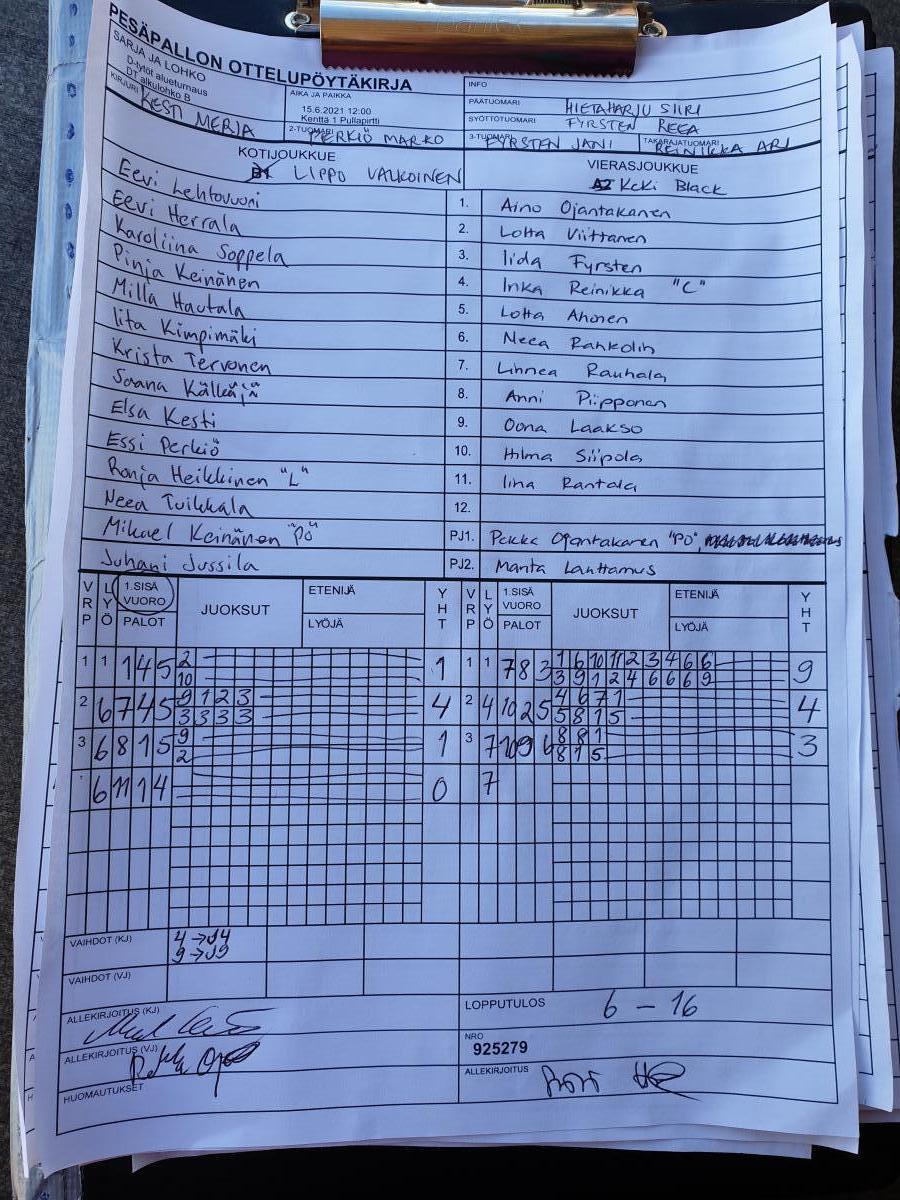 PESÄPALLON OTTELUPÖYTÄKIRJA
SARJA JA LOHKO
D-tytöt alueturnaus
DT alkulohko B
AIKA JA PAIKKA
15.6.2021 12:00
Kenttä 1 Pullapirtti
INFO
PÄÄTUOMARI HIETAHARJU SIIRI
SYÖTTÖTUOMARI FYRSTEN REEA
KIRJURI KESTI MERJA
2-TUOMARI PERKIÖ MARKO
3-TUOMARI FYRSTEN JANI
TAKARAJATUOMARI REINIKKA ARI
KOTIJOUKKUE
B1 LIPPO VALKOINEN
VIERASJOUKKUE
A2 KeKi Black
Eevi Lehtovuori 1. Aino Ojantakanen
Eevi Herrala 2. Lotta Viittanen
Karoliina Soppela 3. Iida Fyrsten
Pinja Keinänen 4. Inka Reinikka "C"
Milla Hautala 5. Lotta Ahonen
Iita Kimpimäki 6. Neea Rahkolin
Krista Tervonen 7. Linnea Rauhala
Saana Kälkäjä 8. Anni Piipponen
Elsa Kesti 9. Oona Laakso
Essi Perkiö 10. Hilma Siipola
Ronja Heikkinen "L" 11. Iina Rantala
Neea Tuikkala 12.
Mikael Keinänen "PÖ" PJ1. Pekka Ojantakanen "PÖ"
Juhani Jussila PJ2. Marita Lanttamus
VRP LYÖ 1.SISÄ VUORO PALOT JUOKSUT ETENIJÄ LYÖJÄ YHT VRP LYÖ 1.SISÄ VUORO PALOT JUOKSUT ETENIJÄ LYÖJÄ YHT
1 1 1 4 5 2 1 1 1 7 8 3 1 6 10 11 2 3 4 6 6 9
10 3 9 1 2 4 6 6 6 9
2 6 7 4 5 9 1 2 3 4 2 4 10 2 5 4 6 7 1 4
3 3 3 3 5 8 1 5
3 6 8 1 5 9 1 3 7 10 9 6 8 8 1 3
2 8 1 5
6 11 1 4 0 7
VAIHDOT (KJ) 4→J4
9→J9
VAIHDOT (VJ)
ALLEKIRJOITUS (KJ)
LOPPUTULOS 6 - 16
ALLEKIRJOITUS (VJ)
NRO
925279
HUOMAUTUKSET
ALLEKIRJOITUS